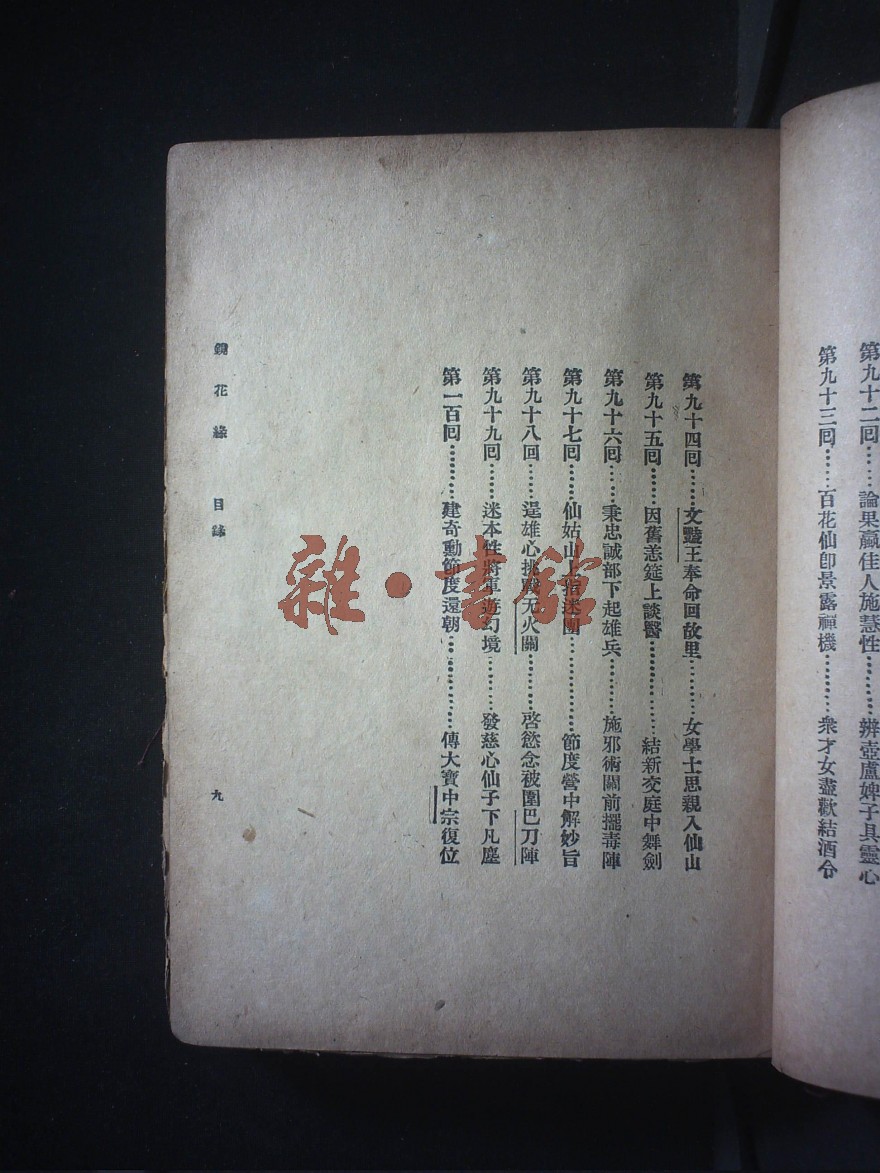 第九十二回……論果蠃佳人施慧性………辨壺盧婢子具靈心
第九十三回……百花仙卽景露禪機………衆才女盡歡結酒令
第九十四回……文豔王奉命回故里………女學士思親入仙山
第九十五回……因舊恙筵上談醫…………結新交庭中舞劍
第九十六回……秉忠誠部下起雄兵………施邪術關前擺毒陣
第九十七回……仙姑山上指迷團…………節度營中解妙旨
第九十八回……逞雄心挑戰无火關………啓慾念被圍巴刀陣
第九十九回……迷本性將軍遊幻境………發慈心仙子下凡塵
第一百回………建奇勳節度還朝…………傳大寶中宗復位
鏡花緣 目錄 九
雜·書館